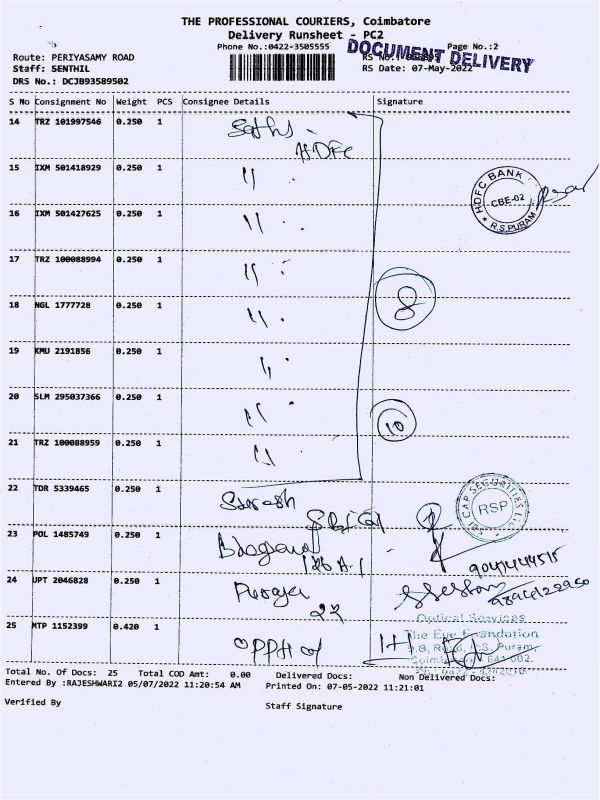 THE PROFESSIONAL COURIERS, Coimbatore
Delivery Runsheet - PC2
Phone No.:0422-3505555
Page No.:2
DOCUMENT DELIVERY
Route: PERIYASAMY ROAD
RS No.:
Staff: SENTHIL
RS Date: 07-May-2022
DRS No.: DCJB93589502
S No Consignment No Weight PCS Consignee Details Signature
14 TRZ 101997546 0.250 1
HDFC
15 IXM 501418929 0.250 1 "
HDFC BANK
CBE-02
* R.S.PURAM *
16 IXM 501427625 0.250 1 "
17 TRZ 100088994 0.250 1 "
8
18 NGL 1777728 0.250 1 "
19 KMU 2191856 0.250 1 "
20 SLM 295037366 0.250 1 "
10
21 TRZ 100088959 0.250 1 "
22 TDR 5339465 0.250 1 Suresh
CAP SECURITIES
RSP
23 POL 1485749 0.250 1
24 UPT 2046828 0.250 1
22
25 MTP 1152399 0.420 1
The Eye Foundation
R.S. Puram,
641 002.
Total No. Of Docs: 25 Total COD Amt: 0.00 Delivered Docs: Non Delivered Docs:
Entered By :RAJESHWARI2 05/07/2022 11:20:54 AM Printed On: 07-05-2022 11:21:01
Verified By
Staff Signature